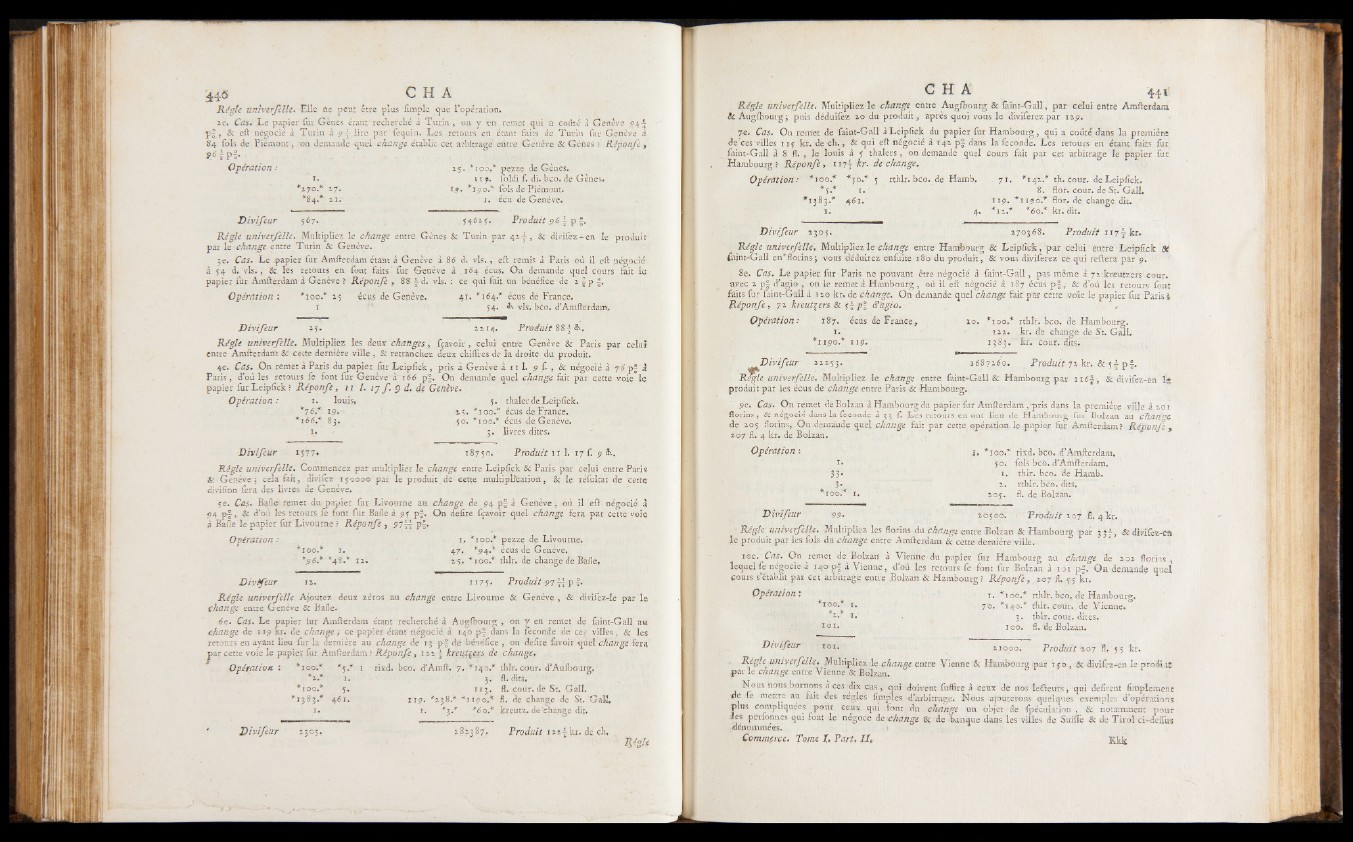 440 C H A
Régle univerſelle. Elle ne peut être plus ſimple que l'opération.
2e. Cas. Le papier ſur Gènes étant recherché à Turin, on y en remet qui a coûté à Genève 94 1/2
p°, & eſt négocié à Turin à 9 1/2 lire par ſequin. Les retours en étant faits de Turin ſur Genève à
84 ſols de Piémont, on demande quel change établit cet arbitrage entre Genève & Gènes ? Réponſe,
96 1/3 p°.
Opération : 25. "100." pezze de Gènes.
1. 119. ſoldi f. di. bco. de Gènes.
"270." 27. 19. "190." ſols de Piémont.
"84." 21. 1. écu de Genève.
Diviſeur 567. 54625. Produit 96 1/3 p°.
Régle univerſelle. Multipliez le change entre Gènes & Turin par 42 1/2, & diviſez-en le produit
par le change entre Turin & Genève.
3e. Cas. Le papier ſur Amſterdam étant à Genève à 86 d. vls., eſt remis à Paris où il eſt négocié
à 54 d. vls., & les retours en ſont faits ſur Genève à 164 écus. On demande quel cours fait le
papier ſur Amſterdam à Genève ? Réponſe, 88 1/2 d. vls. : ce qui fait un bénéfice de 2 7/8 p°.
Opération : "100." 25 écus de Genève. 41. "164." écus de France.
1 54. d. vls. bco. d'Amſterdam.
Diviſeur 25. 2214. Produit 88 1/2 d.
Régle univerſelle. Multipliez les deux changes, ſçavoir, celui entre Genève & Paris par celui
entre Amſterdam & cette dernière ville, & retranchez deux chiffres de la droite du produit.
4e. Cas. On remet à Paris du papier ſur Leipſick, pris à Genève à 11 l. 9 ſ., & négocié à 76 p° à
Paris, d'où les retours ſe font ſur Genève à 166 p°. On demande quel change fait par cette voie le
papier ſur Leipſick ? Réponſe, 11 l. 17 ſ. 9 d. de Genève.
Opération : 1. louis, 5. thaler de Leipſick.
"76." 19. 25. "100." écus de France.
"166." 83. 50. "100." écus de Genève.
1. 3. livres dites.
Diviſeur 1577. 18750. Produit 11 l. 17 ſ. 9 d.
Régle univerſelle. Commencez par multiplier le change entre Leipſick & Paris par celui entre Paris
& Genève ; cela fait, diviſez 150000 par le produit de cette multiplication, & le réſultat de cette
diviſion ſera des livres de Genève.
5e. Cas. Baſle remet du papier ſur Livourne au change de 94 p° à Genève, où il eſt négocié à
94 p°, & d'où les retours ſe font ſur Baſle à 95 p°. On deſire ſçavoir quel change ſera par cette voie
à Baſle le papier ſur Livourne ? Réponſe, 97 11/12 p°.
Opération : 1. "100." pezze de Livourne.
"100." 1. 47. "94." écus de Genève.
"96." "48." 12. 25. "100." thlr. de change de Baſle.
Diviſeur 12. 1175. Produit 97 11/12 p°.
Régle univerſelle Ajoutez deux zéros au change entre Livourne & Genève, & diviſez-le par le
change entre Genève & Baſle.
6e. Cas. Le papier ſur Amſterdam étant recherché à Augſbourg, on y en remet de ſaint-Gall au
change de 119 kr. de change ; ce papier étant négocié à 140 p° dans la ſeconde de ces villes, & les
retours en ayant lieu ſur la dernière au change de 13 p° de bénéfice, on deſire ſavoir quel change ſera
par cette voie le papier ſur Amſterdam ? Réponſe, 122 1/2 kreutzers de change.
Opération : "100." "5." 1 rixd. bco. d'Amſt. 7. "140." thlr. cour. d'Auſbourg.
"2." 1. 3. fl. dits.
"100." 5. 113. fl. cour. de St. Gall.
"1383." 461. 119. "238." "1190." fl. de change de St. Gall.
1. 1. "3." "60." kreutz. de change dit.
Diviſeur 2305. 282387. Produit 122 1/2 kr. de ch.
Régle
C H A 441
Régle univerſelle. Multipliez le change entre Augſbourg & ſaint-Gall, par celui entre Amſterdam
& Augſbourg ; puis déduiſez 20 du produit, après quoi vous le diviſerez par 129.
7e. Cas. On remet de ſaint-Gall à Leipſick du papier ſur Hambourg, qui a coûté dans la première
de ces villes 115 kr. de ch., & qui eſt négocié à 142 p° dans la ſeconde. Les retours en étant faits ſur
ſaint-Gall à 8 fl., le louis à 5 thalers, on demande quel cours fait par cet arbitrage le papier ſur
Hambourg ? Réponſe, 117 1/2 kr. de change.
Opération : "100." "50." 5 rthlr. bco. de Hamb. 71. "142." th. cour. de Leipſick.
"5." 1. 8. flor. cour. de St. Gall.
"1383." 461. 119. "1190." flor. de change dit.
1. 4. "12." "60." kr. dit.
Diviſeur 2305. 270368. Produit 117 1/2 kr.
Régle univerſelle. Multipliez le change entre Hambourg & Leipſick, par celui entre Leipſick &
ſaint-Gall en florins ; vous déduirez enſuite 180 du produit, & vous diviſerez ce qui reſtera par 9.
8e. Cas. Le papier ſur Paris ne pouvant être négocié à ſaint-Gall, pas même à 72 kreutzers cour.
avec 2 p° d'agio, on le remet à Hambourg, où il eſt négocié à 187 écus p°, & d'où les retours ſont
faits ſur ſaint-Gall à 120 kr. de change. On demande quel change fait par cette voie le papier ſur Paris ?
Réponſe, 72 kreutzers & 5 1/4 p° d'agio.
Opération : 187. écus de France, 20. "100." rthlr. bco. de Hambourg.
1. 122. kr. de change de St. Gall.
"1190." 119. 1383. kr. cour. dits.
Diviſeur 22253. 1687260. Produit 72 kr. & 5 1/4 p°.
Régle univerſelle. Multipliez le change entre ſaint-Gall & Hambourg par 116 1/4, & diviſez-en le
produit par les écus de change entre Paris & Hambourg.
9e. Cas. On remet de Bolzan à Hambourg du papier ſur Amſterdam, pris dans la première ville à 201
florins, & négocié dans la ſeconde à 33 ſ. Les retours en ont lieu de Hambourg ſur Bolzan au change
de 205 florins, On demande quel change fait par cette opération le papier ſur Amſterdam ? Réponſe,
207 fl. 4 kr. de Bolzan.
Opération : 1. "100." rixd. bco. d'Amſterdam.
1. 50. ſols bco. d'Amſterdam.
33. 1. thlr. bco. de Hamb.
3. 2. rthlr. bco. dits.
"100." 1. 205. fl. de Bolzan.
Diviſeur 99. 20500. Produit 207 fl. 4 kr.
Régle univerſelle. Multipliez les florins du change entre Bolzan & Hambourg par 33 1/3, & diviſez-en
le produit par les ſols du change entre Amſterdam & cette dernière ville.
10e. Cas. On remet de Bolzan à Vienne du papier ſur Hambourg au change de 202 florins,
lequel ſe négocie à 140 p° à Vienne, d'où les retours ſe font ſur Bolzan à 101 p°. On demande quel
cours s'établit par cet arbitrage entre Bolzan & Hambourg ? Réponſe, 207 fl. 55 kr.
Opération : 1. "100." rthlr. bco. de Hambourg.
"100." 1. 70. "140." thlr. cour. de Vienne.
"2." 1. 3. thlr. cour. dites.
101. 100. fl. de Bolzan.
Diviſeur 101. 21000. Produit 207 fl. 55 kr.
Régle univerſelle. Multipliez le change entre Vienne & Hambourg par 150, & diviſez-en le produit
par le change entre Vienne & Bolzan.
Nous nous bornons à ces dix cas, qui doivent ſuffire à ceux de nos lecteurs, qui deſirent ſimplement
de ſe mettre au fait des régles ſimples d'arbitrage. Nous ajouterons quelques exemples d'opérations
plus compliquées pour ceux qui font du change un objet de ſpéculation, & notamment pour
les perſonnes qui font le négoce de change & de banque dans les villes de Suiſſe & de Tirol ci-deſſus
dénommées.
Commerce. Tome I. Part. II. Kkk